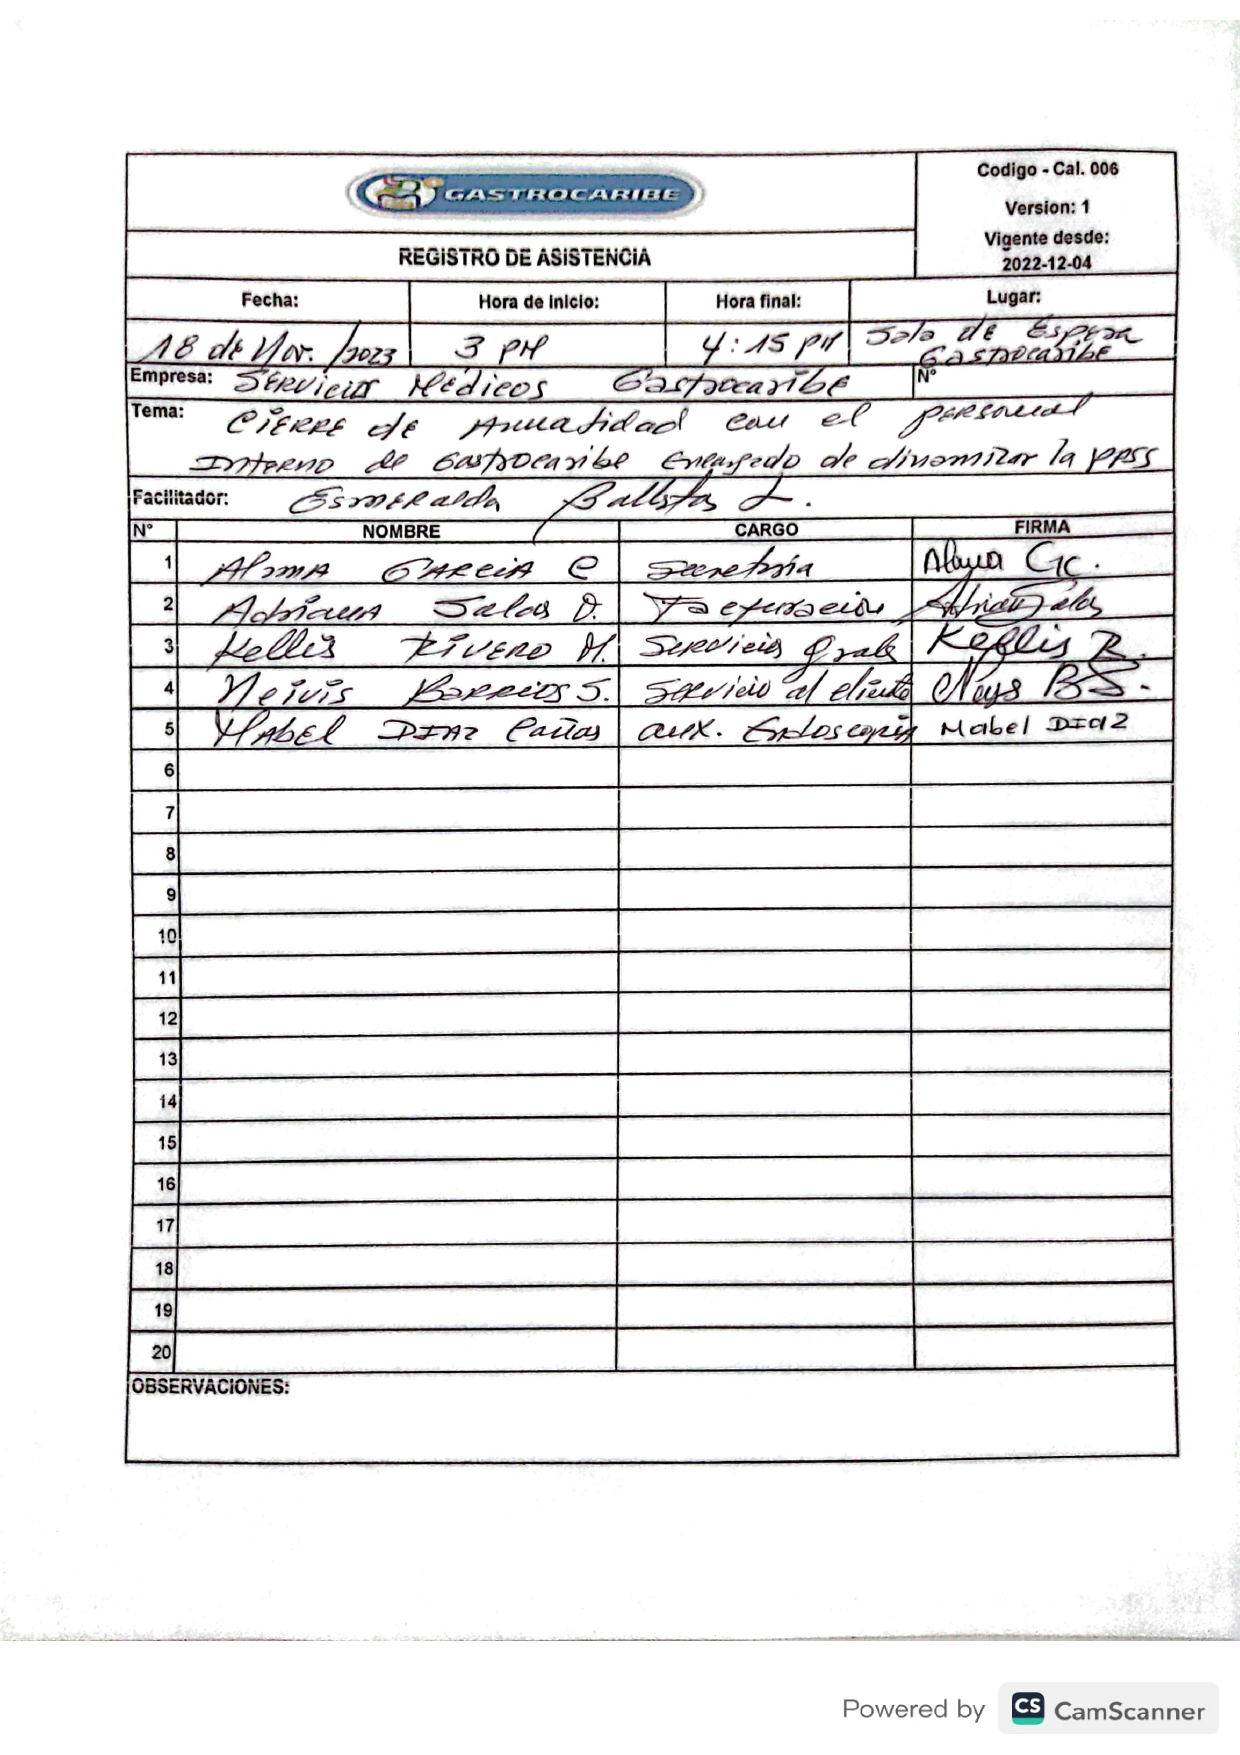 GASTROCARIBE
Codigo - Cal. 006
Version: 1
Vigente desde:
2022-12-04
REGISTRO DE ASISTENCIA
Fecha: Hora de Inicio: Hora final: Lugar:
18 de Nov. /2023 3 PM 4:15 PM Sala de Espera
Gastrocaribe
Empresa: Servicios Médicos Gastrocaribe N°
Tema: Cierre de Anualidad con el personal
Interno de Gastrocaribe Encargado de dinamizar la PPSS
Facilitador: Esmeralda Ballestas L.
N° NOMBRE CARGO FIRMA
1 Alma GARCIA C Secretaria Alma GC.
2 Adriana Salas O. Facturación Adriana Salas
3 Kellis Rivero M. Servicios Grales Kellis R.
4 Neivis Barrios S. Servicio al cliente Neys BS.
5 Mabel DIAZ Cañas aux. Endoscopia Mabel DIAZ
6
7
8
9
10
11
12
13
14
15
16
17
18
19
20
OBSERVACIONES:
Powered by CS CamScanner